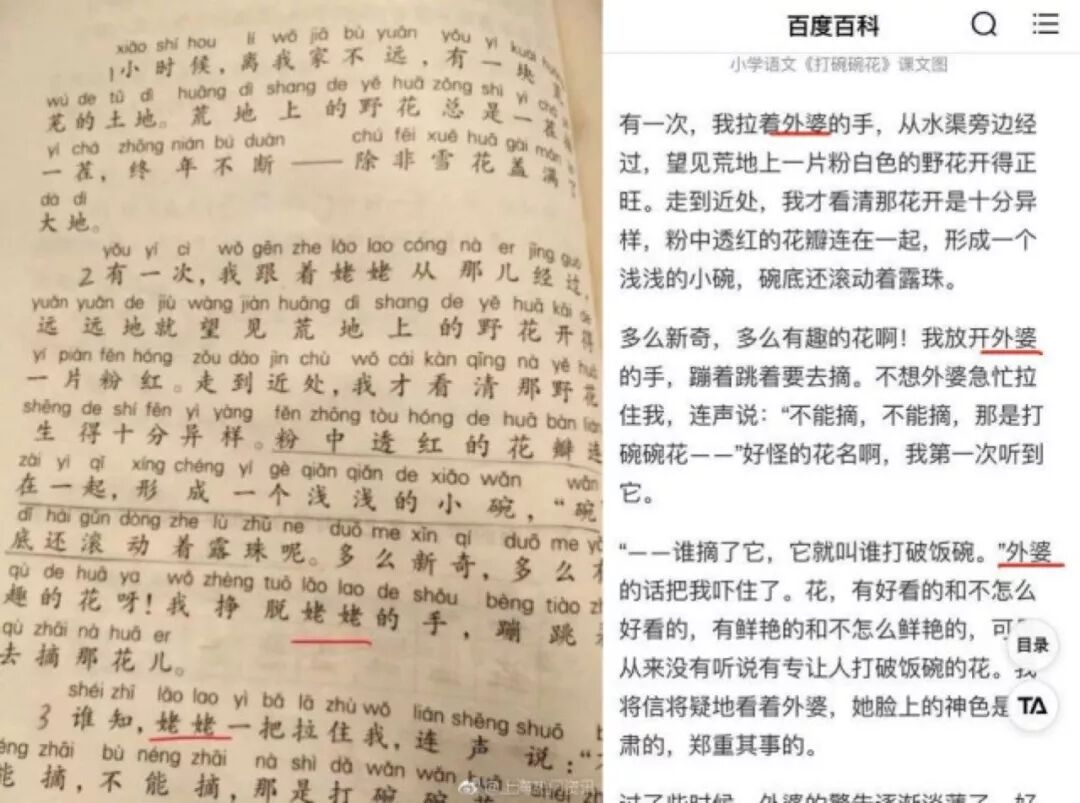 xiǎo shí hou lí wǒ jiā bù yuǎn yǒu yí kuài
1小时候，离我家不远，有一块
wú de tǔ dì huāng dì shang de yě huā zǒng shì yì chá
芜的土地。荒地上的野花总是一茬
yì chá zhōng nián bú duàn chú fēi xuě huā gài mǎn
一茬，终年不断——除非雪花盖满了
dà dì
大地。
yǒu yí cì wǒ gēn zhe lǎo lao cóng nà er jīng guò
2有一次，我跟着姥姥从那儿经过，
yuǎn yuǎn de jiù wàng jiàn huāng dì shang de yě huā kāi de
远远地就望见荒地上的野花开得
yí piàn fěn hóng zǒu dào jìn chù wǒ cái kàn qīng nà yě huā
一片粉红。走到近处，我才看清那野花
shēng de shí fēn yì yàng fěn zhōng tòu hóng de huā bàn lián
生得十分异样。粉中透红的花瓣连
zài yì qǐ xíng chéng yí gè qiǎn qiǎn de xiǎo wǎn wǎn
在一起，形成一个浅浅的小碗，“碗
dǐ hái gǔn dòng zhe lù zhū ne duō me xīn qí duō me yǒu
底还滚动着露珠呢。多么新奇，多么有
qù de huā ya wǒ zhèng tuō lǎo lao de shǒu bèng tiào zhe
趣的花呀！我挣脱姥姥的手，蹦跳着
qù zhāi nà huā er
去摘那花儿。
shéi zhī lǎo lao yì bǎ lā zhù wǒ lián shēng shuō
3谁知，姥姥一把拉住我，连声说：“不
néng zhāi bù néng zhāi nà shì dǎ wǎn wǎn huā
能摘，不能摘，那是打碗碗花
@上海新闻资讯
百度百科
小学语文《打碗碗花》课文图
有一次，我拉着外婆的手，从水渠旁边经
过，望见荒地上一片粉白色的野花开得正
旺。走到近处，我才看清那花开是十分异
样，粉中透红的花瓣连在一起，形成一个
浅浅的小碗，碗底还滚动着露珠。
多么新奇，多么有趣的花啊！我放开外婆
的手，蹦着跳着要去摘。不想外婆急忙拉
住我，连声说：“不能摘，不能摘，那是打
碗碗花——”好怪的花名啊，我第一次听到
它。
“——谁摘了它，它就叫谁打破饭碗。”外婆
的话把我吓住了。花，有好看的和不怎么
好看的，有鲜艳的和不怎么鲜艳的，可
从来没有听说有专让人打破饭碗的花。我
将信将疑地看着外婆，她脸上的神色是
肃的，郑重其事的。
过了些时候，外婆的警告逐渐淡薄了，好
目录
TA